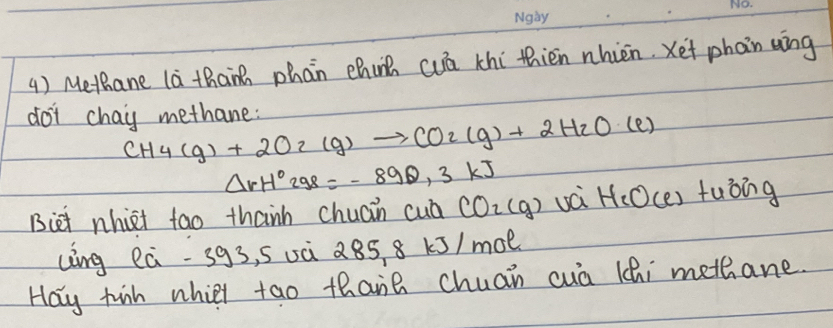 Ngày
No.
4) Methane là thành phần chính của khí thiên nhiên. Xét phản ứng
đốt cháy methane:
CH4 (g) + 2O2 (g) → CO2 (g) + 2H2O (l)
ΔrH⁰298 = - 890,3 kJ
Biết nhiệt tạo thành chuẩn của CO2 (g) và H2O(l) tương
ứng là - 393,5 và 285,8 kJ/mol
Hãy tính nhiệt tạo thành chuẩn của khí methane.